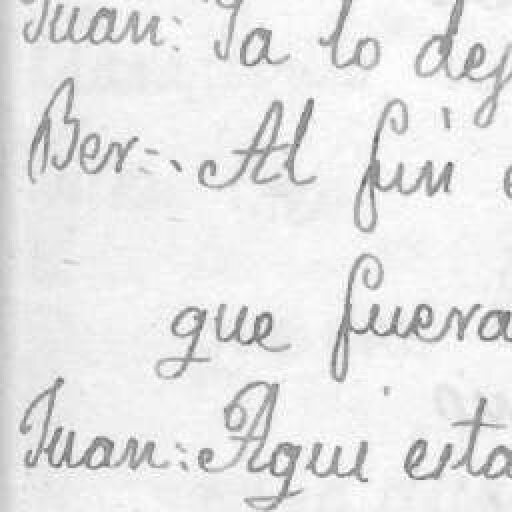 Juan: Ya lo dej
Ber-. Al fin
que fuera
Juan: Aqui esta